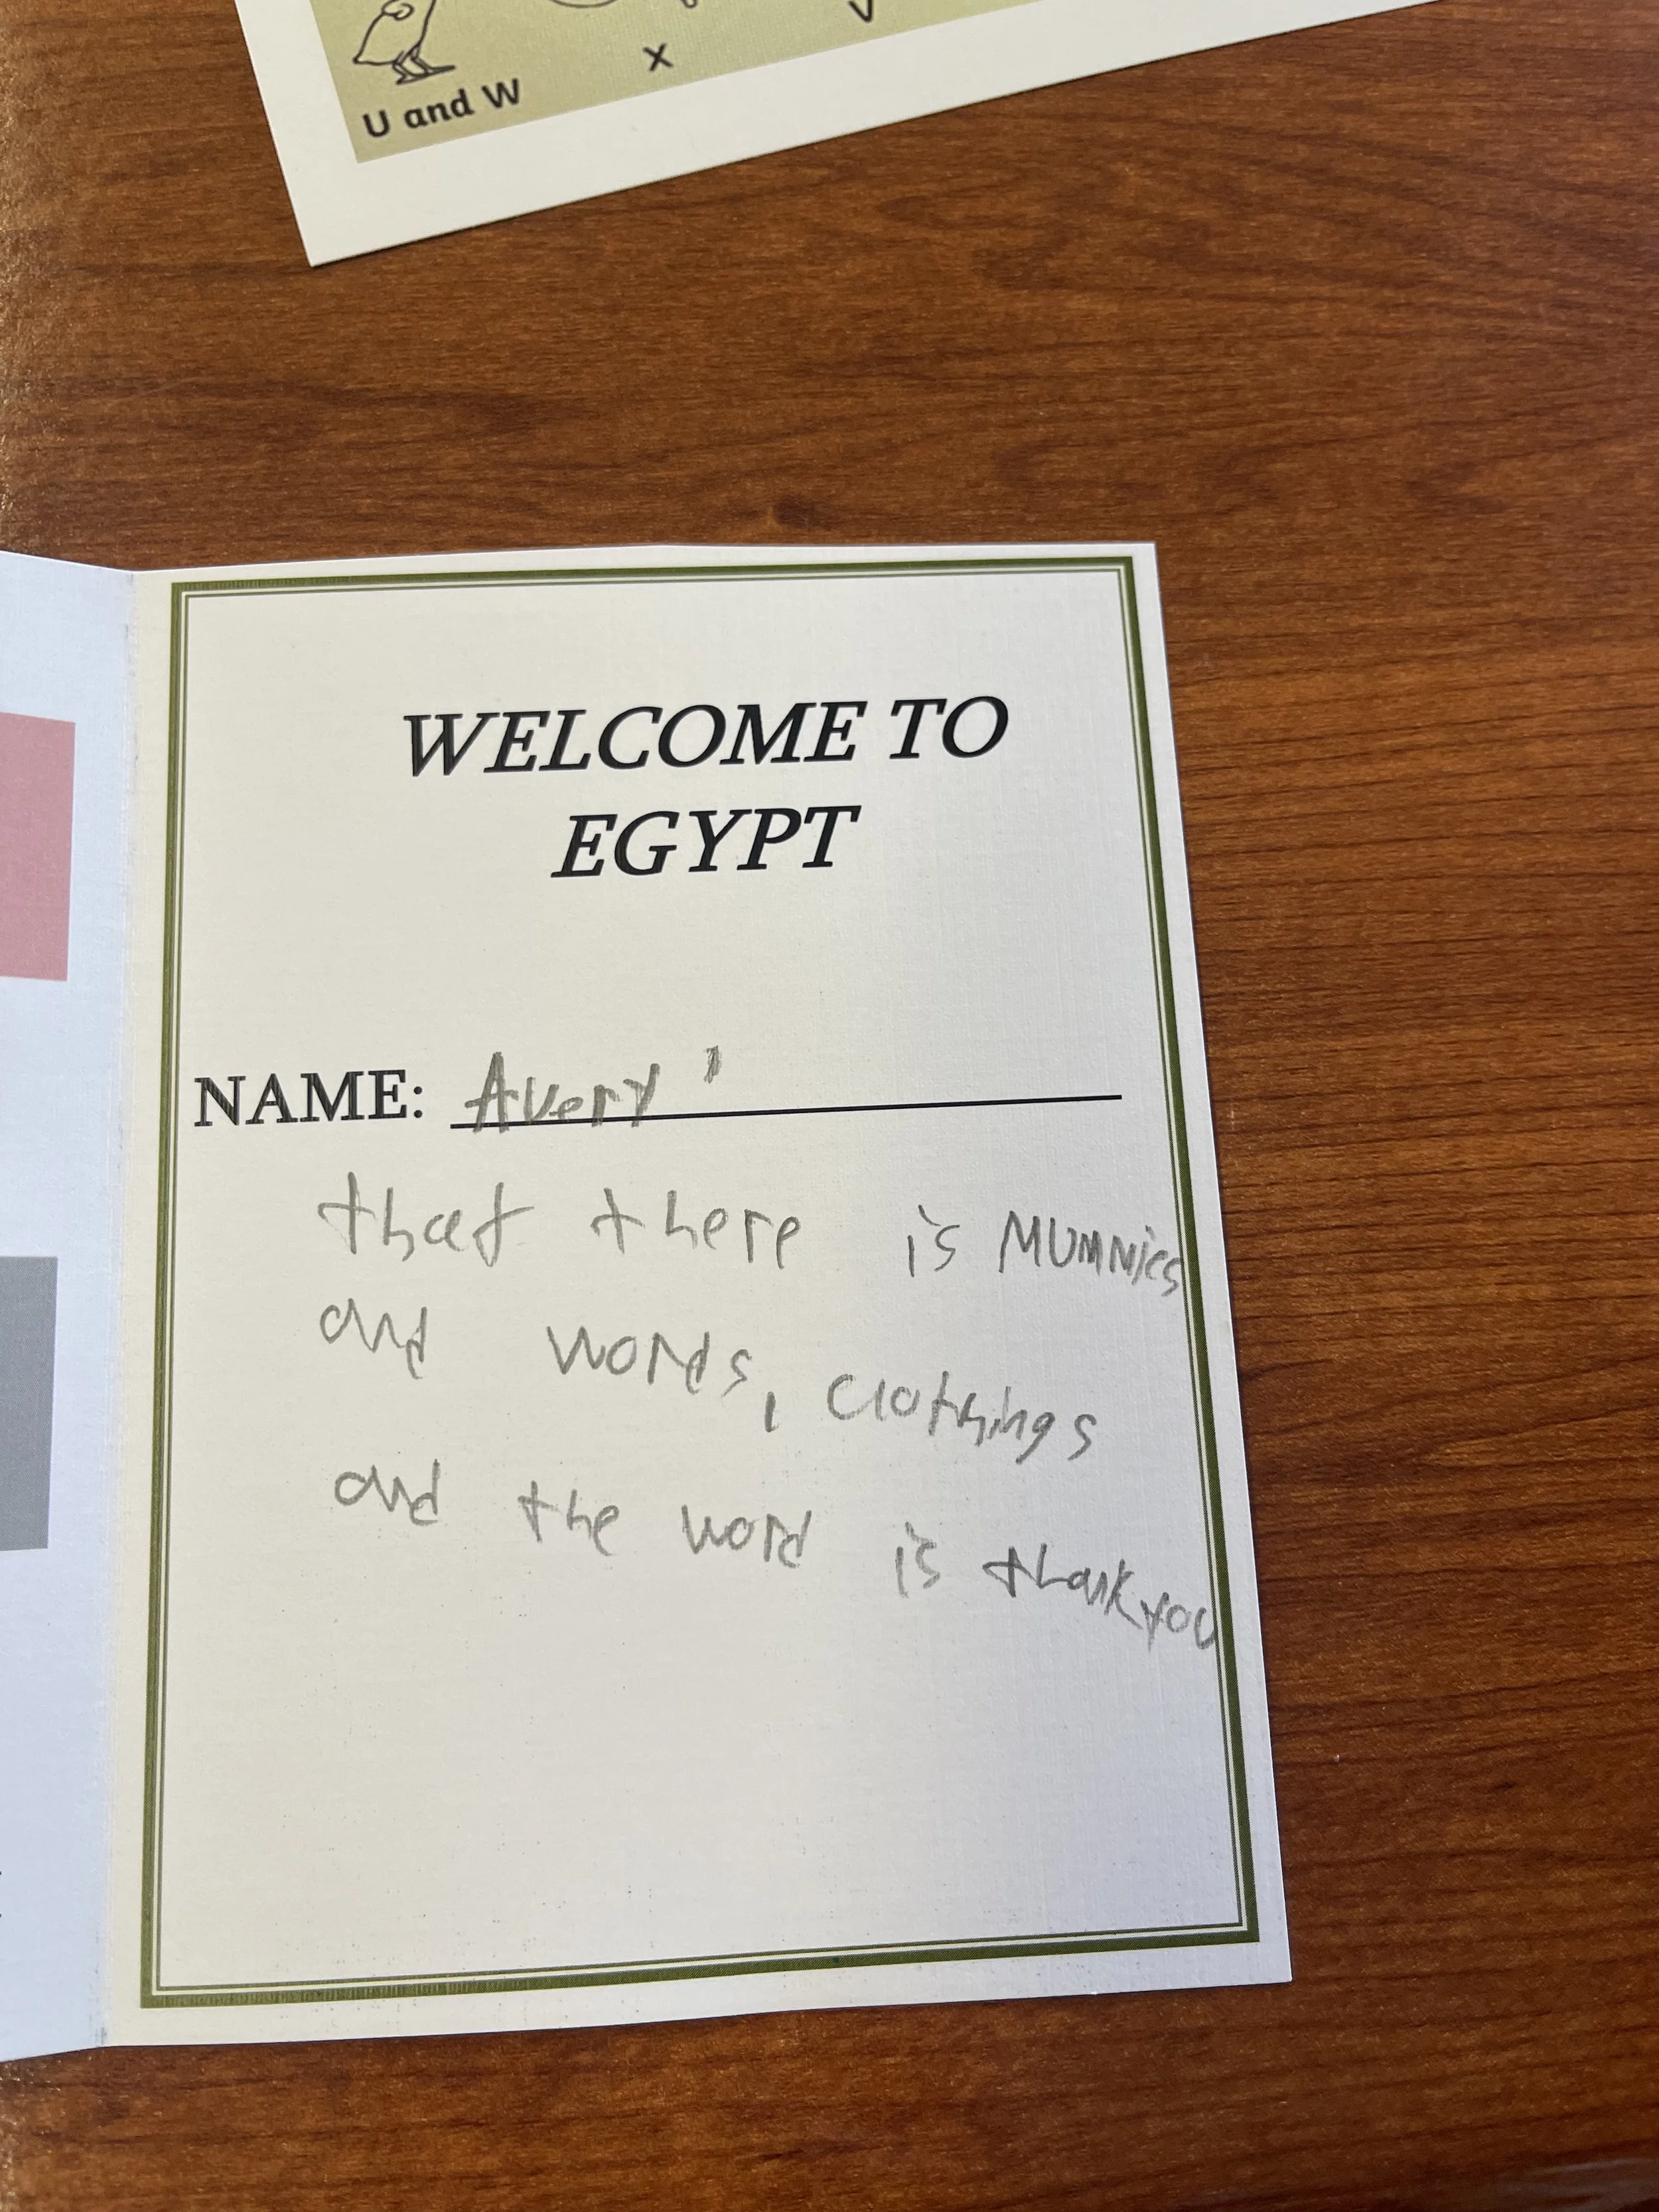 x
U and W
WELCOME TO
EGYPT
NAME: Avery '
that there is Mummies
and words, clothings
and the word is thank you